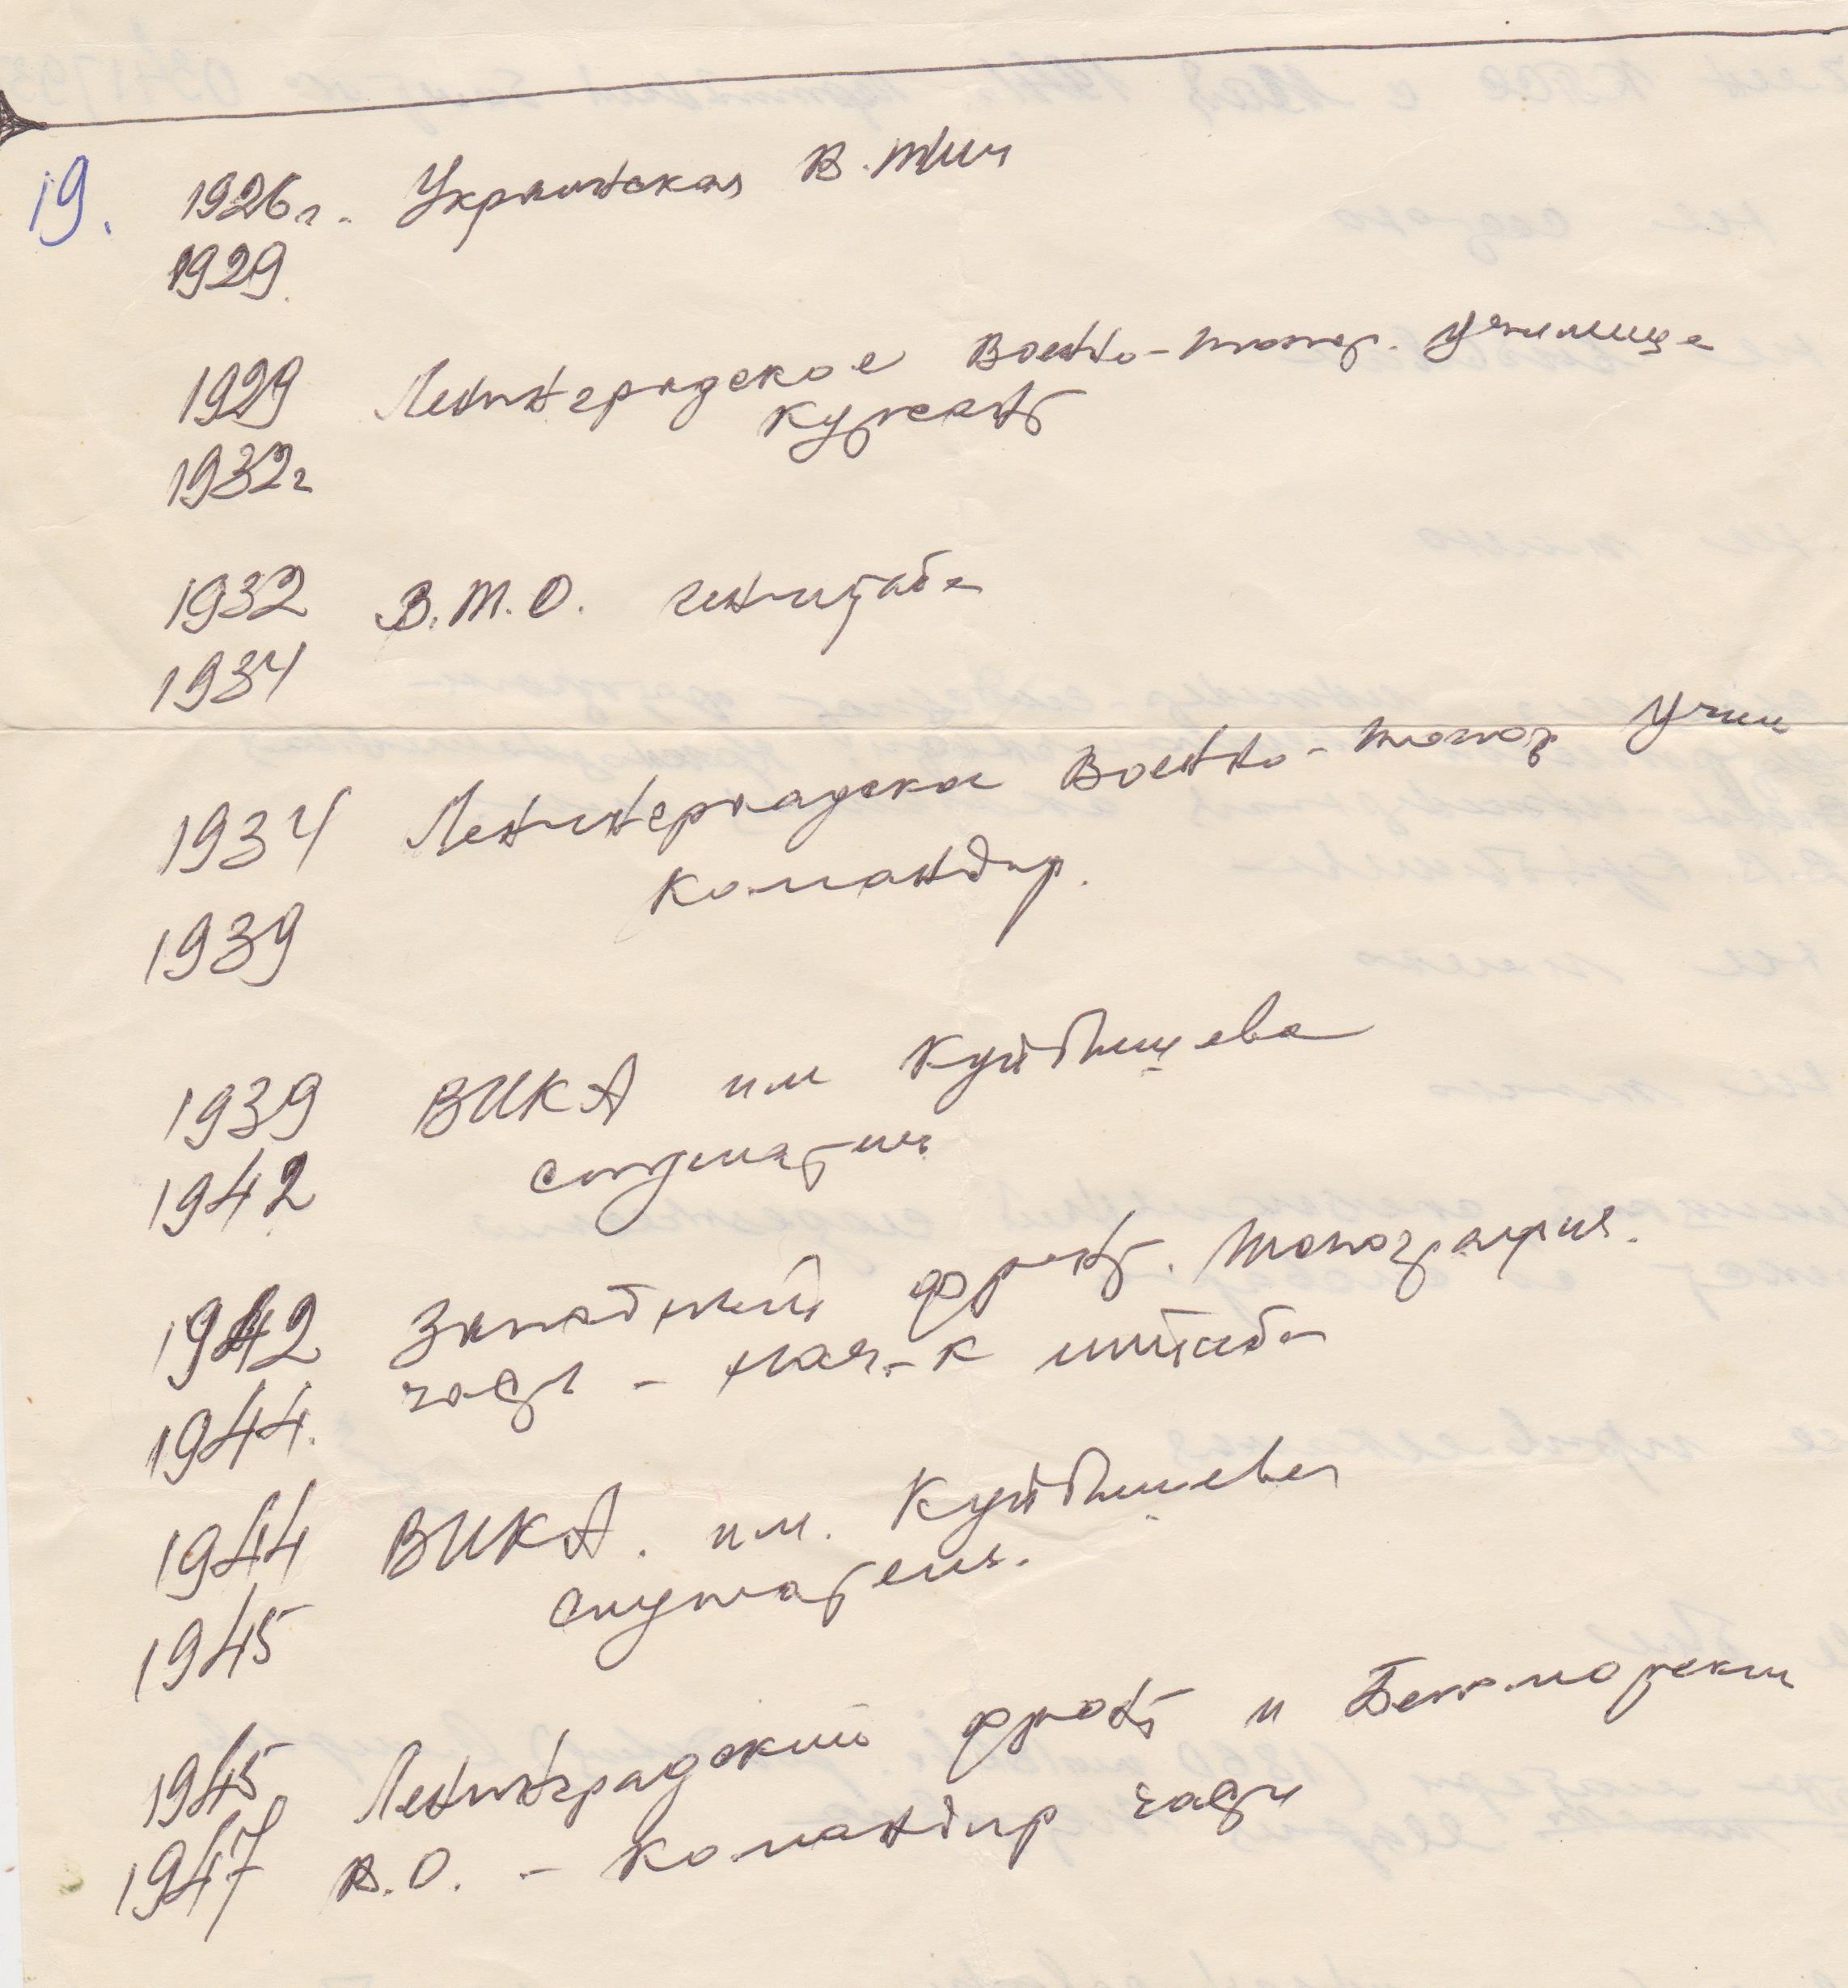 19. 1926г. Украинская В.
1929.
1929 Ленинградское Военно-топогр. Училище
Курсант
1932г
1932 В.Т.О. генштаба
1934
1934 Ленинградское Военно-топог Учил
Командир.
1939
1939 ВИКА им Куйбышева
1942 слушатель
1942 Западный фронт. Топография.
1944. части - нач-к штаба
1944 ВИКА. им. Куйбышева
слушатель.
1945
1945 Ленинградский фронт и Беломорский
1947 В.О. - Командир части